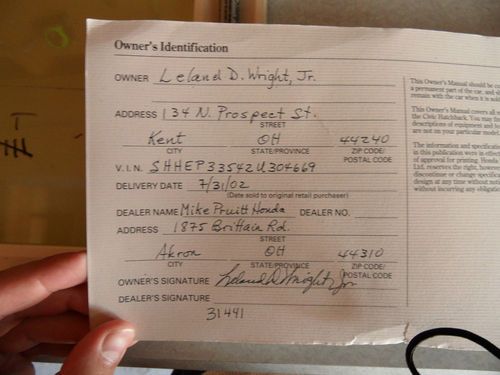 Owner's Identification
OWNER Leland D. Wright, Jr.
ADDRESS 134 N. Prospect St.
STREET
Kent OH 44240
CITY STATE/PROVINCE ZIP CODE/
POSTAL CODE
V.I.N. SHHEP33542U304669
DELIVERY DATE 7/31/02
(Date sold to original retail purchaser)
DEALER NAME Mike Pruitt Honda DEALER NO.
ADDRESS 1875 Brittain Rd.
STREET
Akron OH 44310
CITY STATE/PROVINCE ZIP CODE/
POSTAL CODE
OWNER'S SIGNATURE Leland D Wright, Jr
DEALER'S SIGNATURE
31441
This Owner's Manual should be
a permanent part of the car, and
remain with the car when it is
This Owner's Manual covers all
the Civic Hatchback. You may
descriptions of equipment and
are not on your particular model.
The information and
in this publication were in
of approval for printing. Honda
Ltd. reserves the right, however,
discontinue or change
design at any time without
without incurring any
T